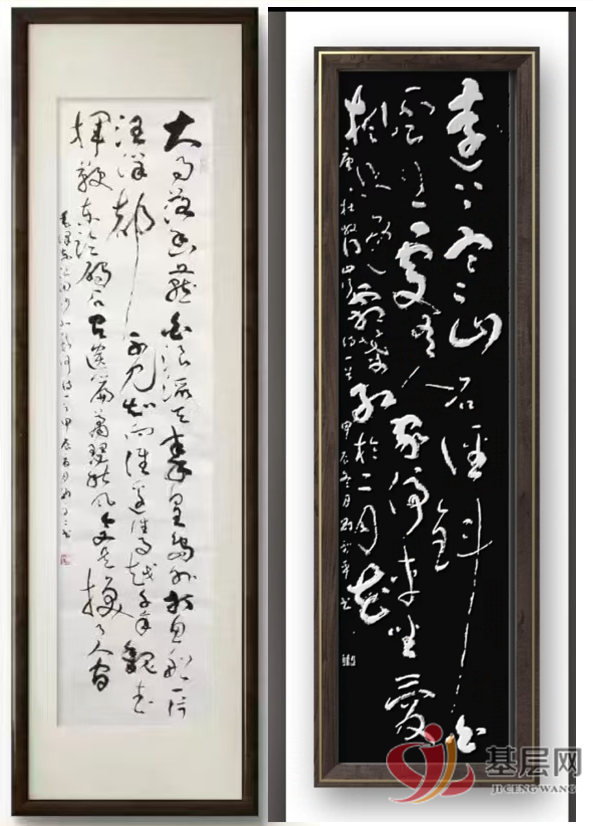 大雨落幽燕白浪滔天秦皇岛外打鱼船一片
汪洋都不见知向谁边往事越千年魏武
挥鞭东临碣石有遗篇萧瑟秋风今又是换了人间
甲辰
远上寒山石径斜白
云生处有人家停车坐爱
枫林晚霜叶红於二月花
唐杜牧 山行 诗一首 甲辰冬月
基层网
JI CENG WANG